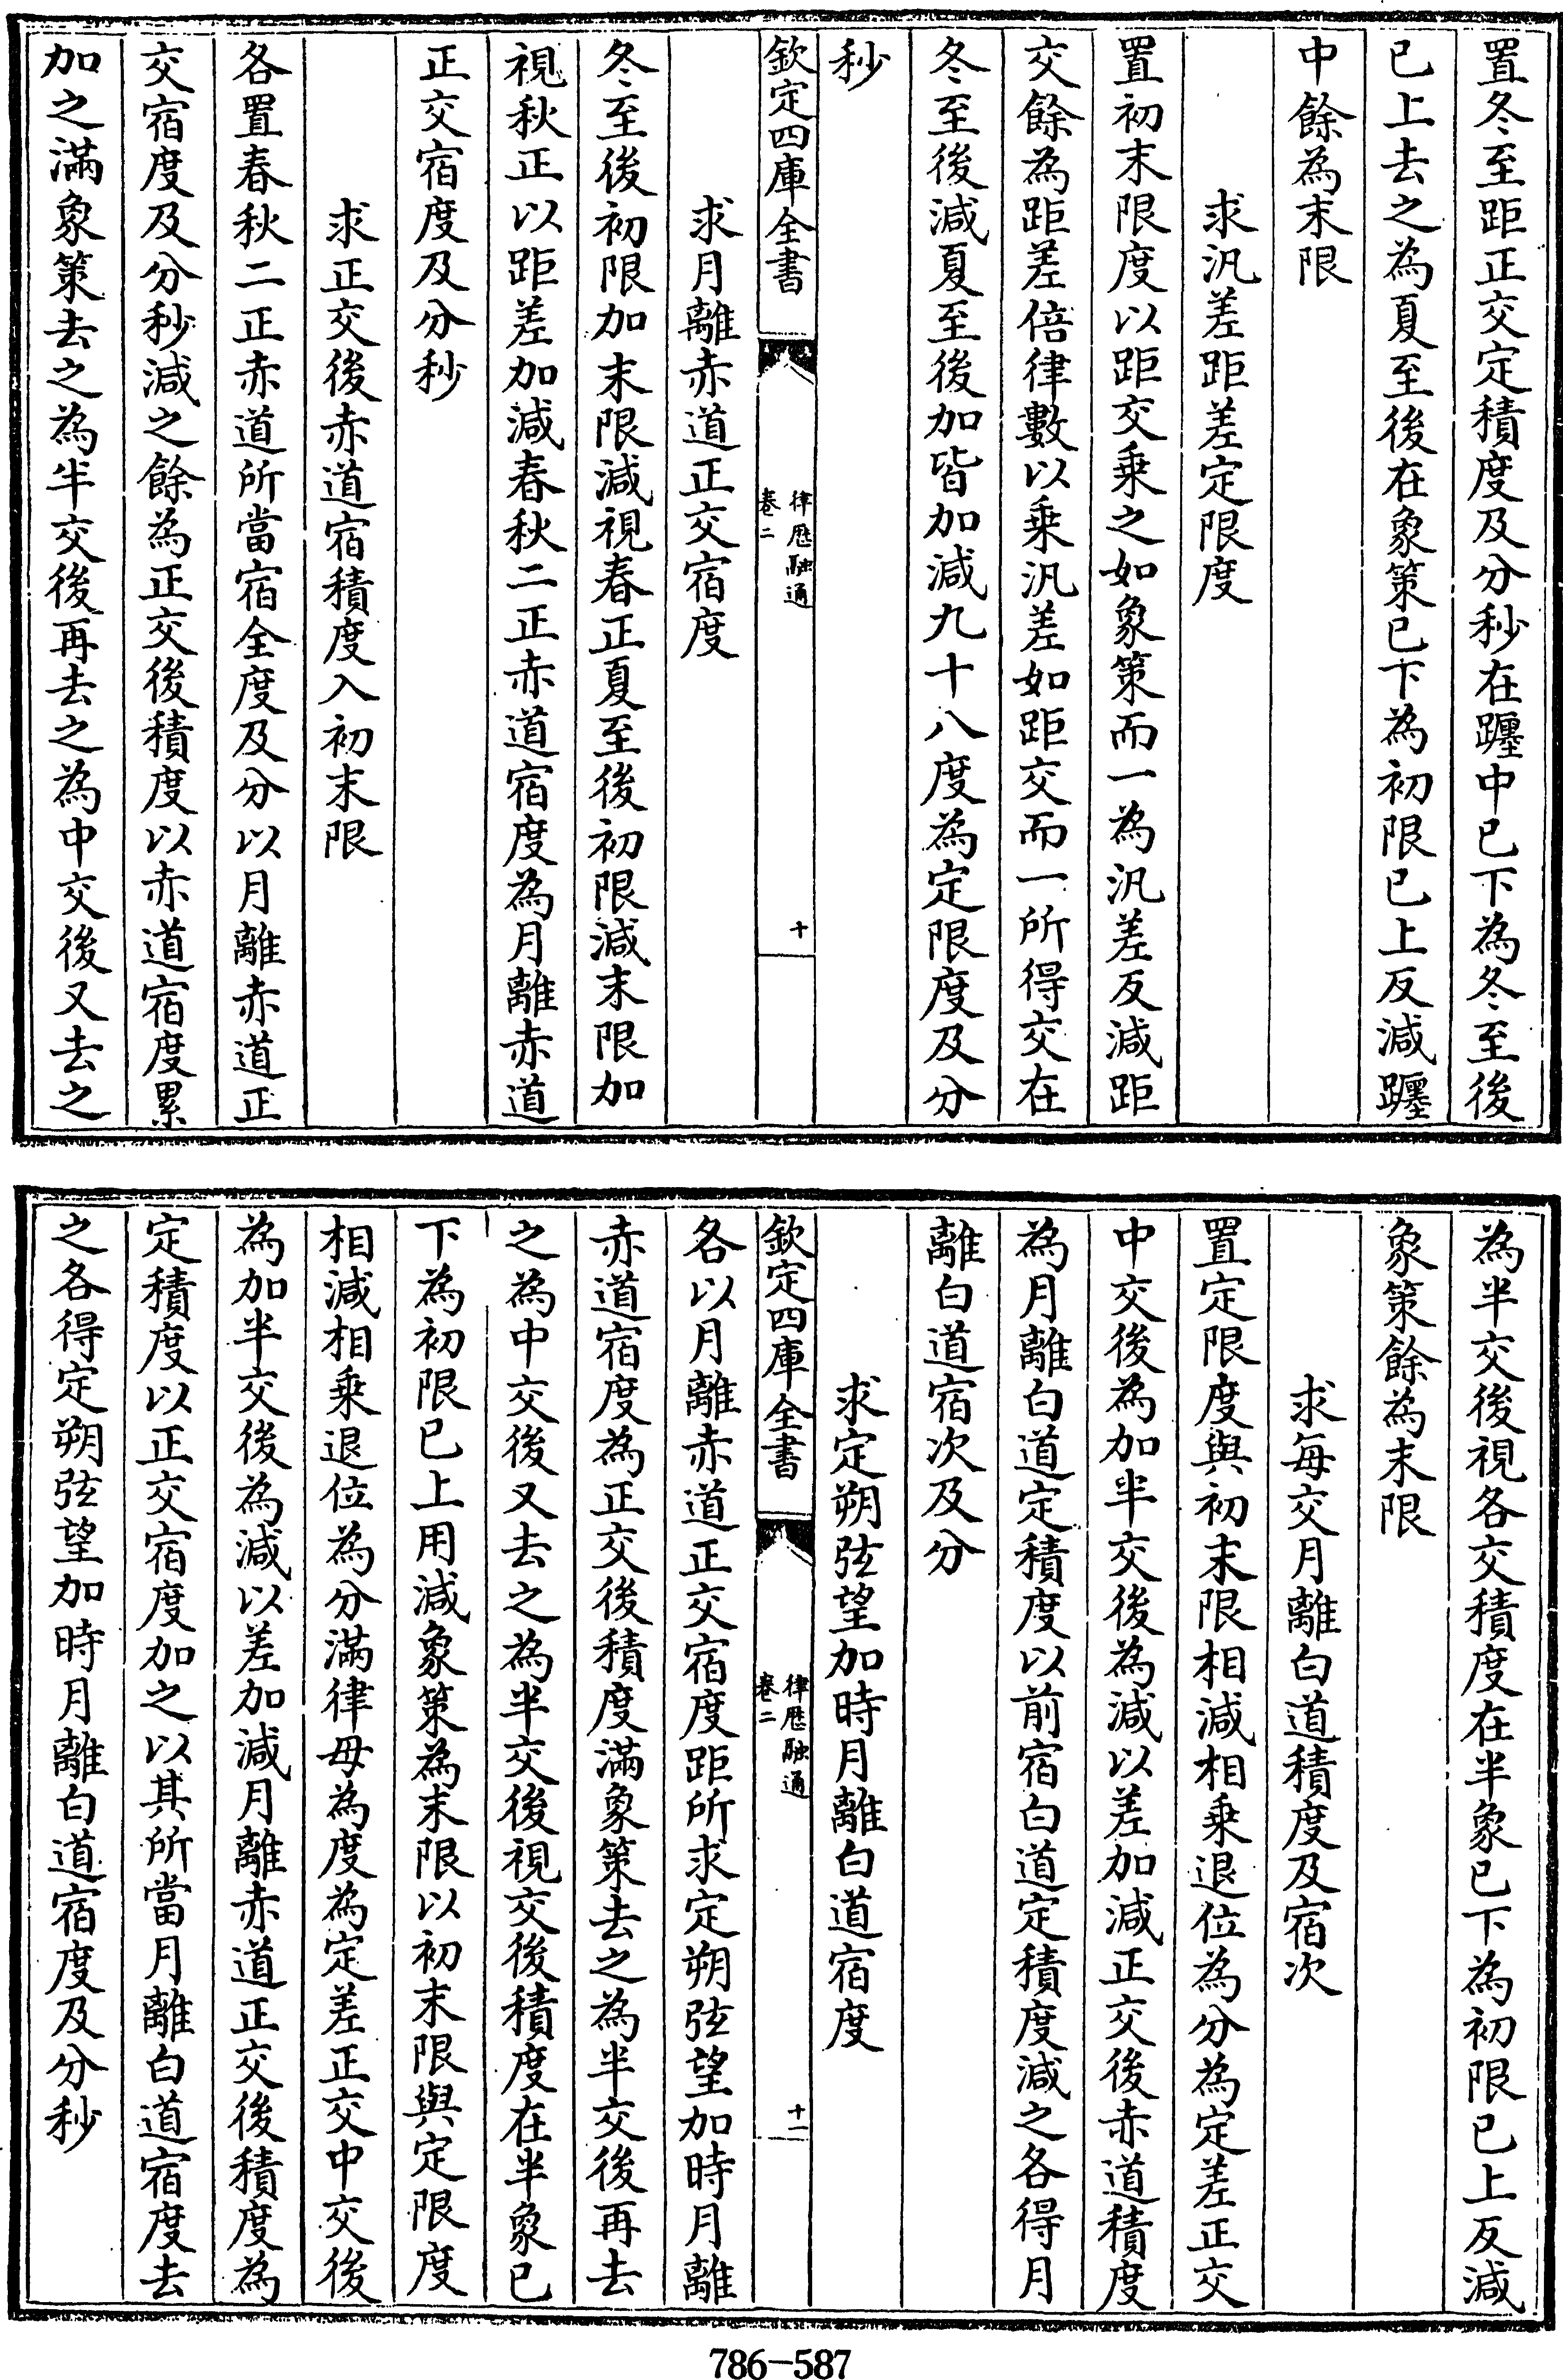 置冬至距正交定積度及分秒在躔中已下為冬至後
已上去之為夏至後在象策已下為初限已上反減躔
中餘為末限
求汎差距差定限度
置初末限度以距交乘之如象策而一為汎差反減距
交餘為距差倍律數以乘汎差如距交而一所得交在
冬至後減夏至後加皆加減九十八度為定限度及分
秒
欽定四庫全書
律歷融通
卷二
十
求月離赤道正交宿度
冬至後初限加末限減視春正夏至後初限減末限加
視秋正以距差加減春秋二正赤道宿度為月離赤道
正交宿度及分秒
求正交後赤道宿積度入初末限
各置春秋二正赤道所當宿全度及分以月離赤道正
交宿度及分秒減之餘為正交後積度以赤道宿度累
加之滿象策去之為半交後再去之為中交後又去之
為半交後視各交積度在半象已下為初限已上反減
象策餘為末限
求每交月離白道積度及宿次
置定限度與初末限相減相乘退位為分為定差正交
中交後為加半交後為減以差加減正交後赤道積度
為月離白道定積度以前宿白道定積度減之各得月
離白道宿次及分
求定朔弦望加時月離白道宿度
欽定四庫全書
律歷融通
卷二
十一
各以月離赤道正交宿度距所求定朔弦望加時月離
赤道宿度為正交後積度滿象策去之為半交後再去
之為中交後又去之為半交後視交後積度在半象已
下為初限已上用減象策為末限以初末限與定限度
相減相乘退位為分滿律母為度為定差正交中交後
為加半交後為減以差加減月離赤道正交後積度為
定積度以正交宿度加之以其所當月離白道宿度去
之各得定朔弦望加時月離白道宿度及分秒
786-587